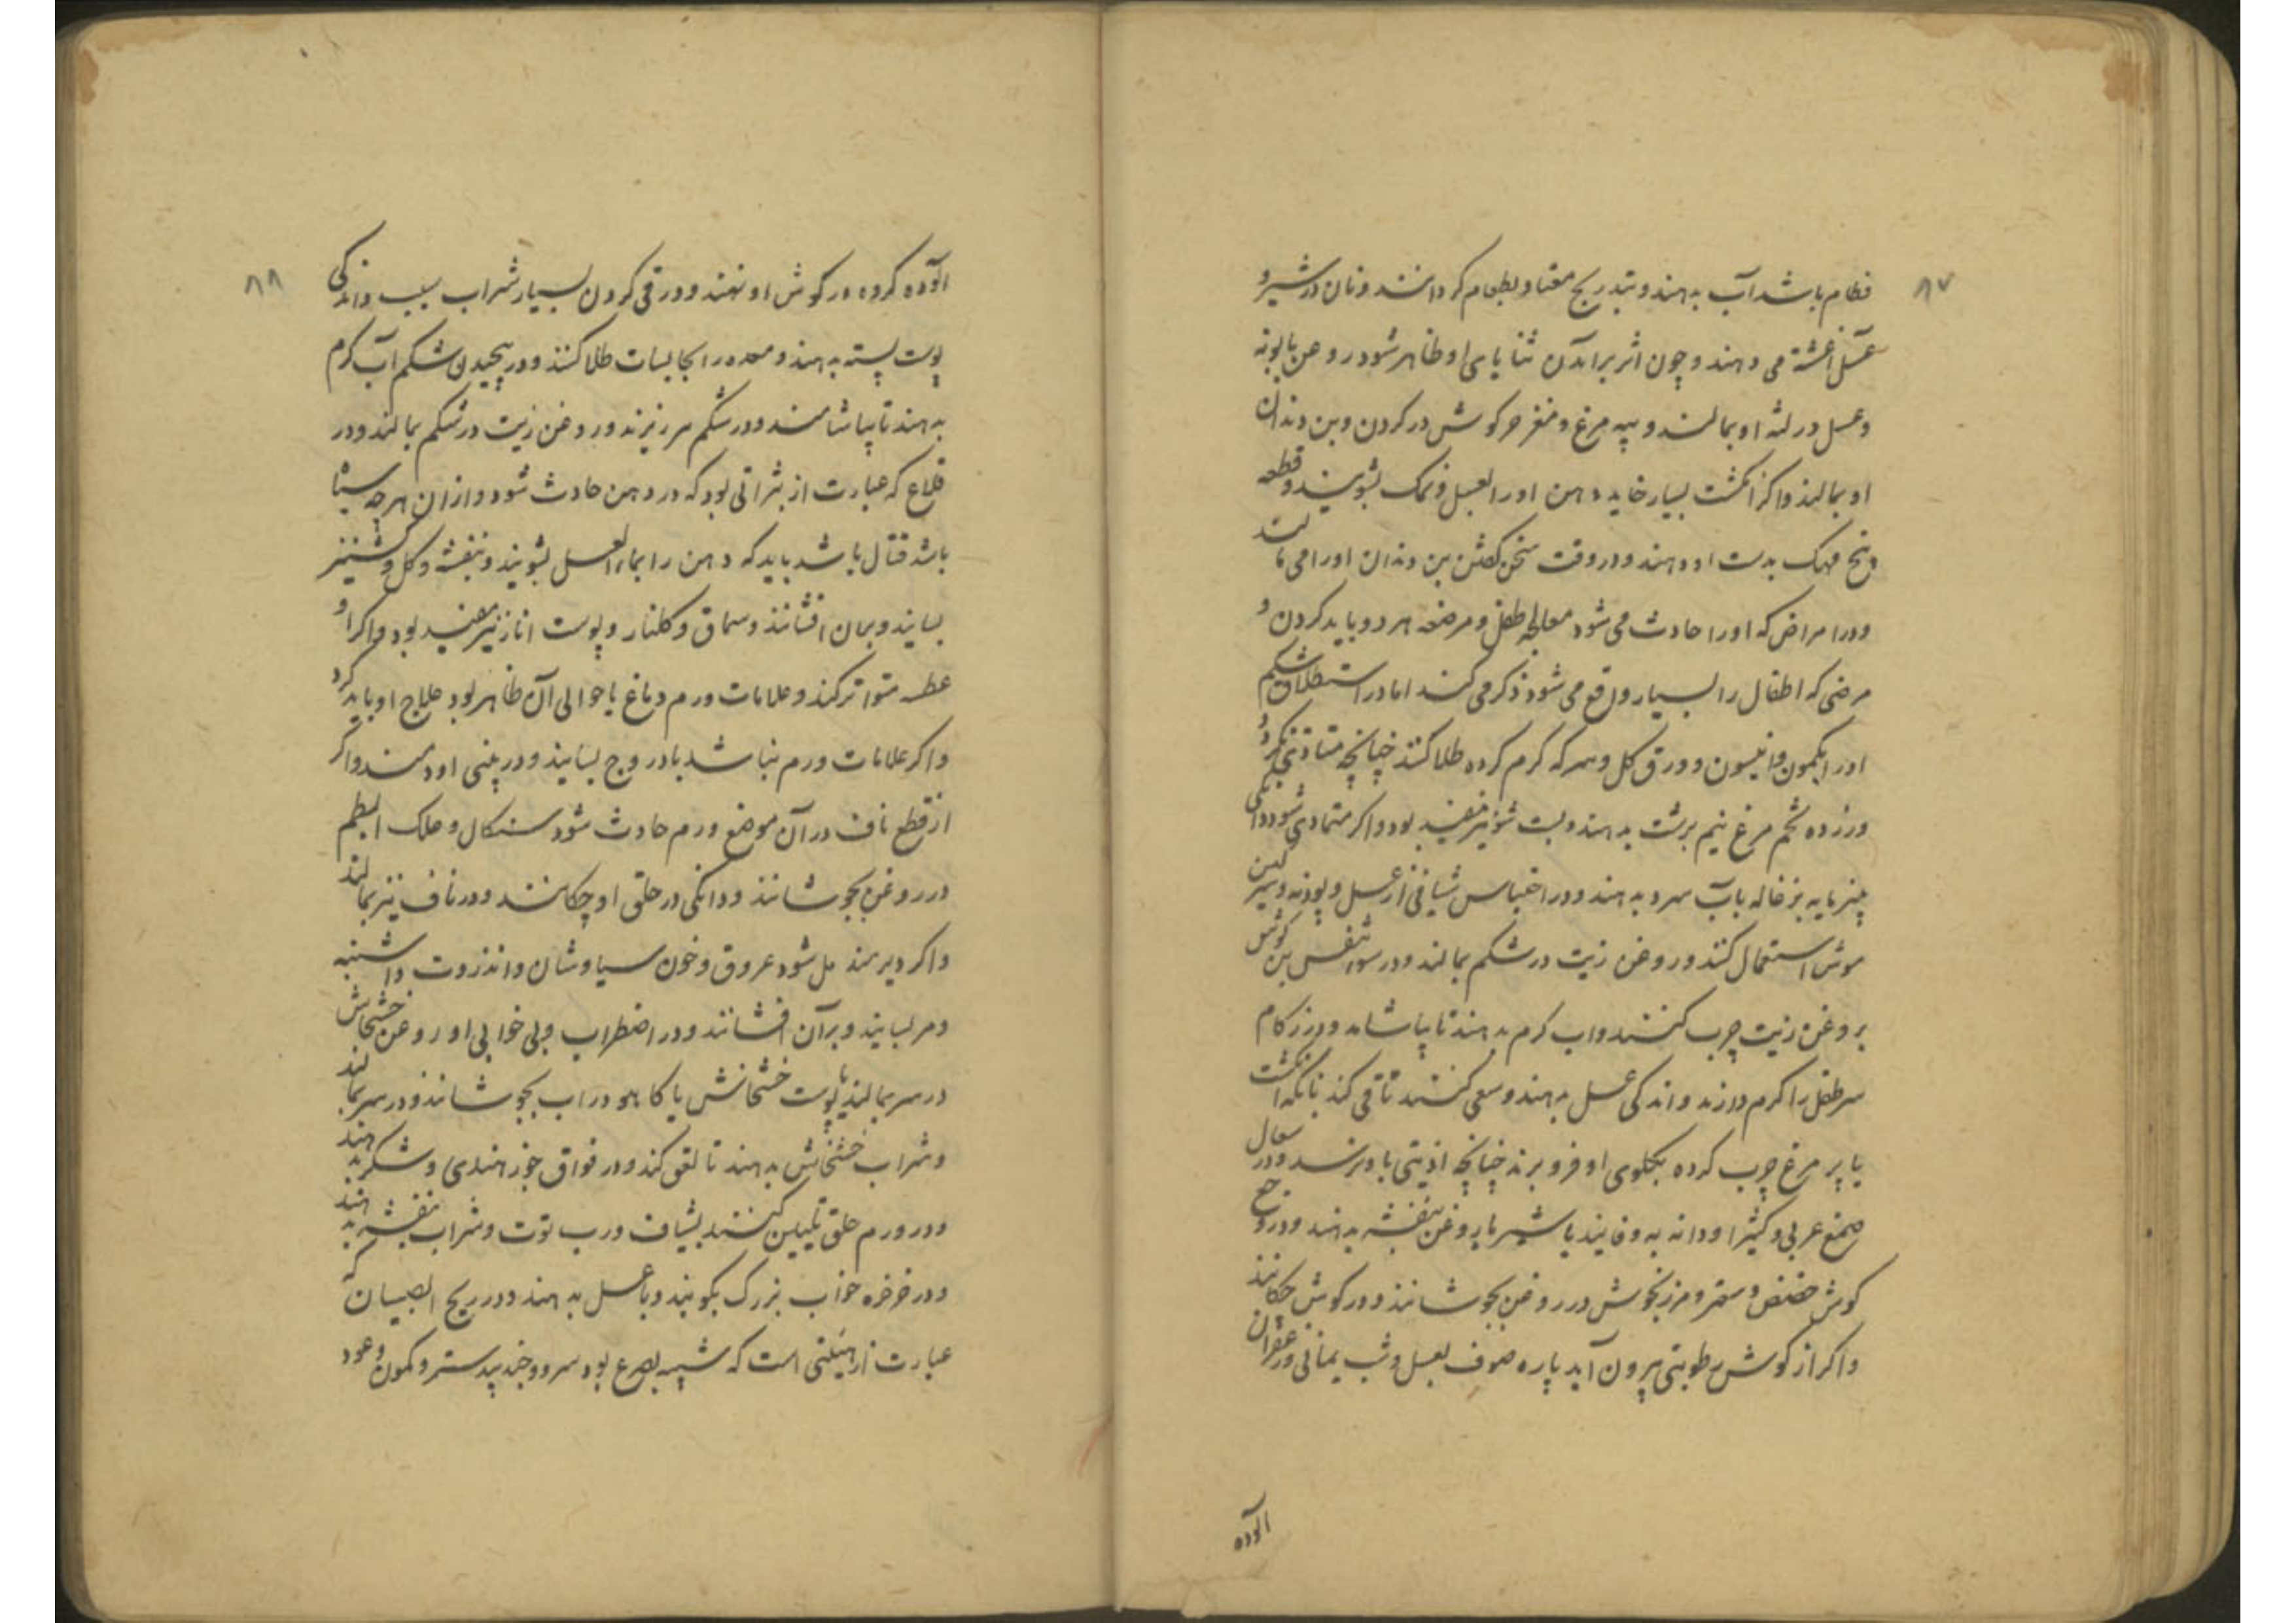 ۸۷
فطام باشد آب بدهند و بتدریج معتاد بطعام کردانند و نان در شیر و
عسل آغشته می دهند و چون اثر برآمدن ثنایای او ظاهر شود روغن بابونه
و عسل در لثه او بمالند و پیه مرغ و مغز خرکوش در کردن و بن دندان
او بمالند و اکر انکشت بسیار خاید دهن او را بعسل و نمک بشویند و قطعه
بیخ مهک بدست او دهند و در وقت سخن کفتن بن دندان او را می مالند
و در امراض که او را حادث می شود معالجه طفل و مرضعه هر دو باید کردن و
مرضی که اطفال را بسیار واقع می شود ذکر می کند اما در استطلاق شکم
او را بکمون و انیسون و ورق کل و سرکه کرم کرده طلا کنند چنانچه متاذی نکردد
و زرده تخم مرغ نیم برشت بدهند و پست شونیز مفید بود و اکر متمادی شود دانکی
پنیر مایه بزغاله باب سرد بدهند و در احتباس شیافی از عسل و پودنه و سرکین
موش استعمال کنند و روغن زیت در شکم بمالند و در سوء تنفس بن کوش
بروغن زیت چرب کنند و اب کرم بدهند تا بیاشامد و در زکام
سر طفل را کرم دارند و اندکی عسل بدهند و سعی کنند تا قی کند بانکه انکشت
یا پر مرغ چرب کرده بکلوی او فرو برند چنانچه اذیتی باو نرسد و در سعال
صمغ عربی و کثیرا و دانه به و فانید با شیر یا روغن بنفشه بدهند و در وجع
کوش حضض و سعتر و مرزنجوش در روغن بجوشانند و در کوش چکانند
و اکر از کوش رطوبتی بیرون آید پاره صوف بعسل و شب یمانی و زعفران
آلوده
۸۸
آلوده کرده در کوش او نهند و در قی کردن بسیار شراب سیب و اندکی
پوست پسته بدهند و معده را بحابسات طلا کنند و در پیچیدن شکم آب کرم
بدهند تا بیاشامند و در شکم ریزند و روغن زیت در شکم بمالند و در
قلاع که عبارت از بثراتی بود که در دهن حادث شود و از ان هرچه سیاه
باشد قتال باشد باید که دهن را بماء العسل بشویند و بنفشه و کل و کشنیز
بسایند و بران افشانند و سماق و کلنار و پوست انار نیز مفید بود و اکر او
عطسه متواتر کند و علامات ورم دماغ یا حوالی آن ظاهر بود علاج او باید کرد
و اکر علامات ورم نباشد بادروج بسایند و در بینی او دمند و اکر
از قطع ناف در آن موضع ورم حادث شود سنکال و علک البطم
در روغن بجوشانند و دانکی در حلق او چکانند و در ناف نیز بمالند
و اکر دیر مندمل شود عروق و خون سیاوشان و انزروت و اشنه
و مر بسایند و بر آن افشانند و در اضطراب و بی خوابی او روغن خشخاش
در سر بمالند یا پوست خشخاش یا کاهو در اب بجوشانند و در سر بمالند
و شراب خشخاش بدهند تا لعق کند و در فواق جوز هندی و شکر بدهند
و در ورم حلق تلیین کنند بشیاف و رب توت و شراب بنفشه بدهند
و در خرخره خواب بزرک بکوبند و با عسل بدهند و در ریح الصبیان که
عبارت از هیئتی است که شبیه بصرع بود سرو و جندبیدستر و کمون و عود